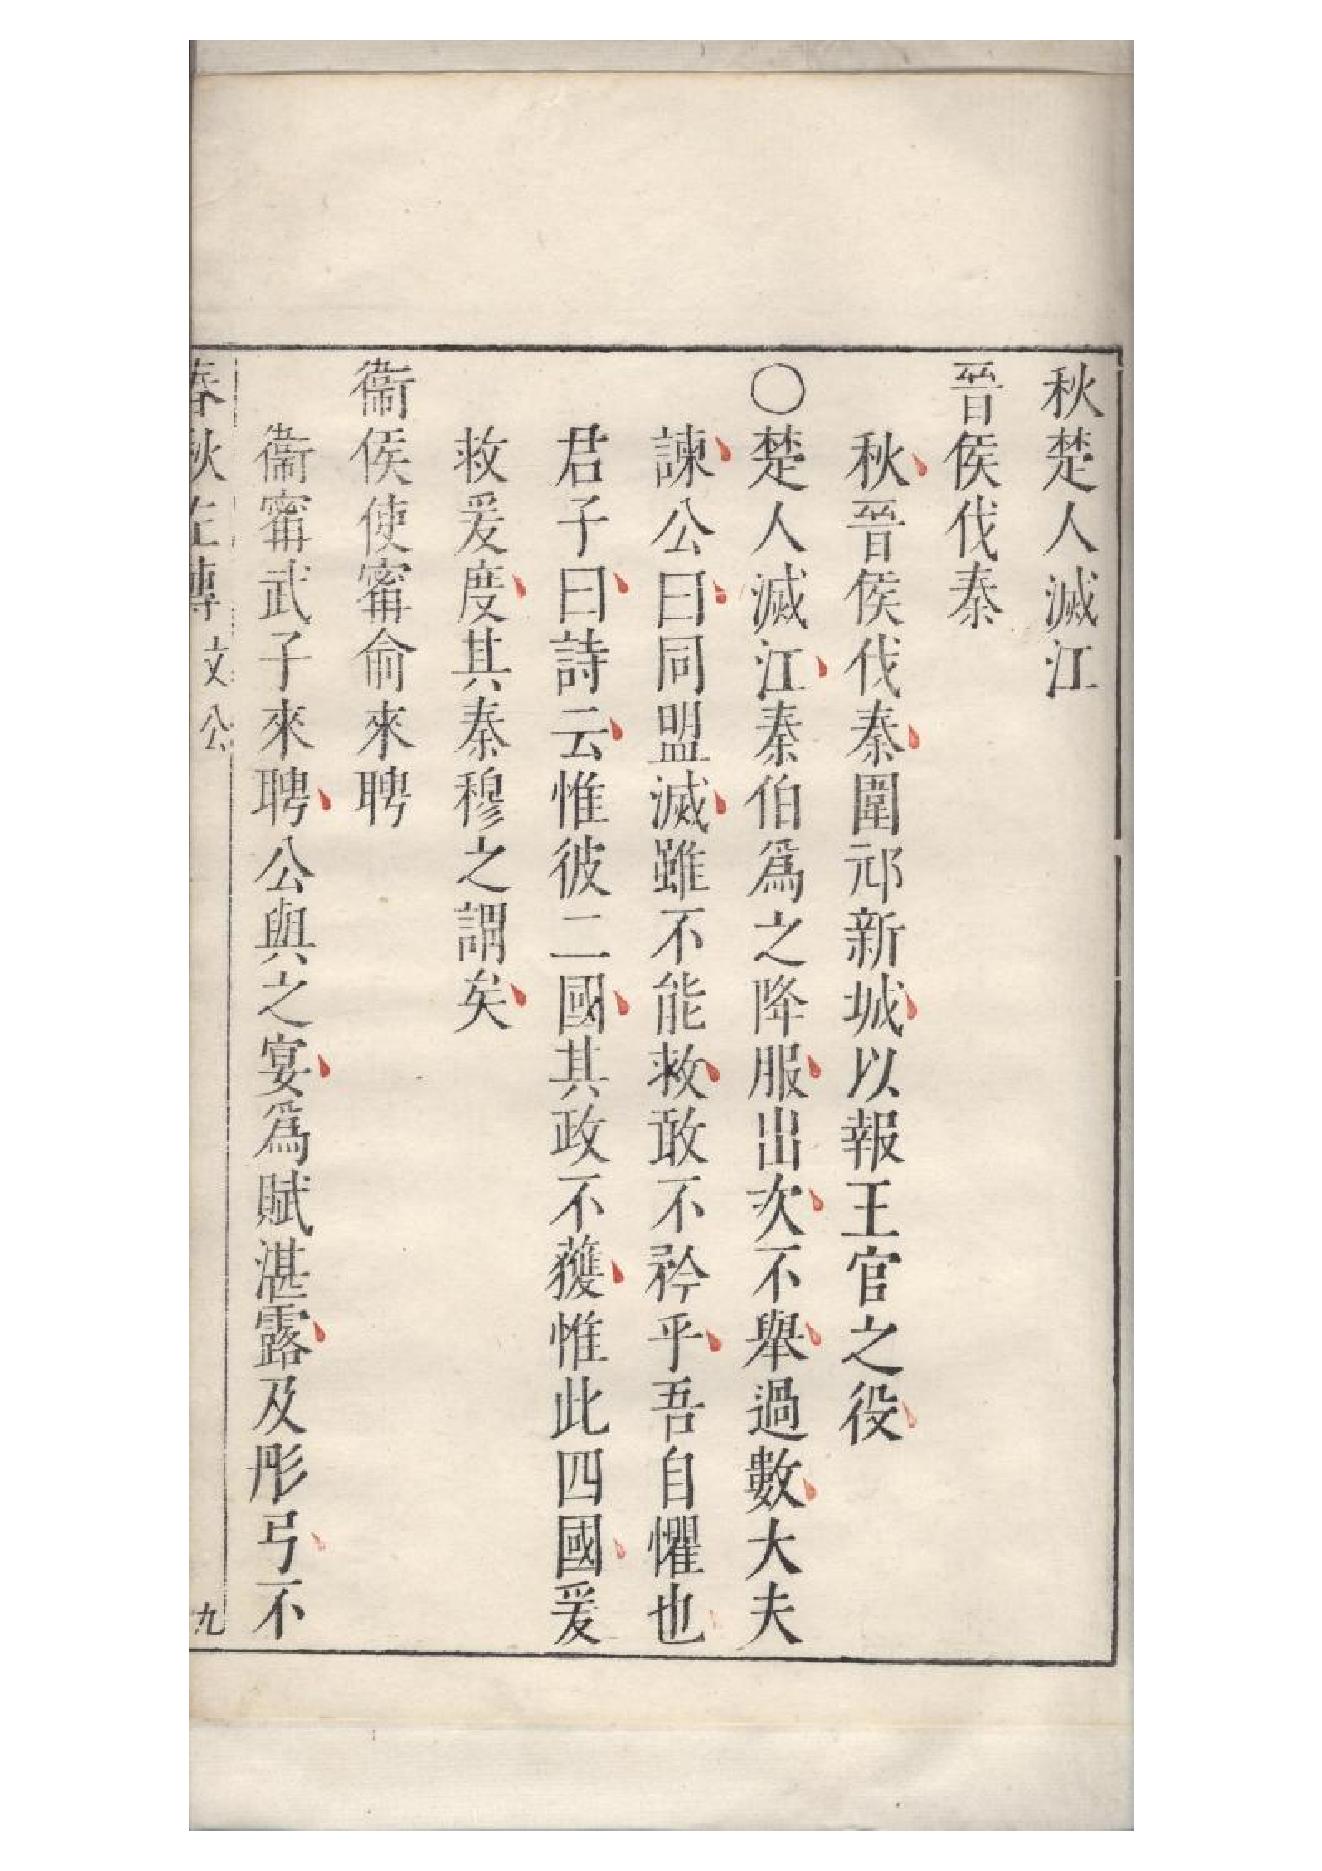 秋楚人滅江
晉侯伐秦
秋晉侯伐秦圍邧新城以報王官之役
○楚人滅江秦伯爲之降服出次不舉過數大夫
諫公曰同盟滅雖不能救敢不矜乎吾自懼也
君子曰詩云惟彼二國其政不獲惟此四國爰
救爰度其秦穆之謂矣
衞侯使甯俞來聘
衞甯武子來聘公與之宴爲賦湛露及彤弓不
春秋左傳 文公 九